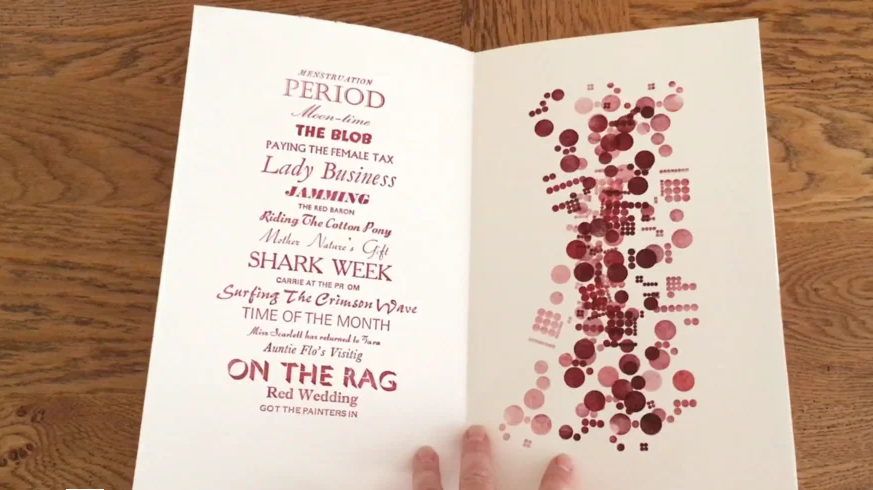 MENSTRUATION
PERIOD
Moon-time
THE BLOB
PAYING THE FEMALE TAX
Lady Business
JAMMING
THE RED BARON
Riding The Cotton Pony
Mother Nature's Gift
SHARK WEEK
CARRIE AT THE PR OM
Surfing The Crimson Wave
TIME OF THE MONTH
Miss Scarlett has returned to Tara
Auntie Flo's Visitig
ON THE RAG
Red Wedding
GOT THE PAINTERS IN